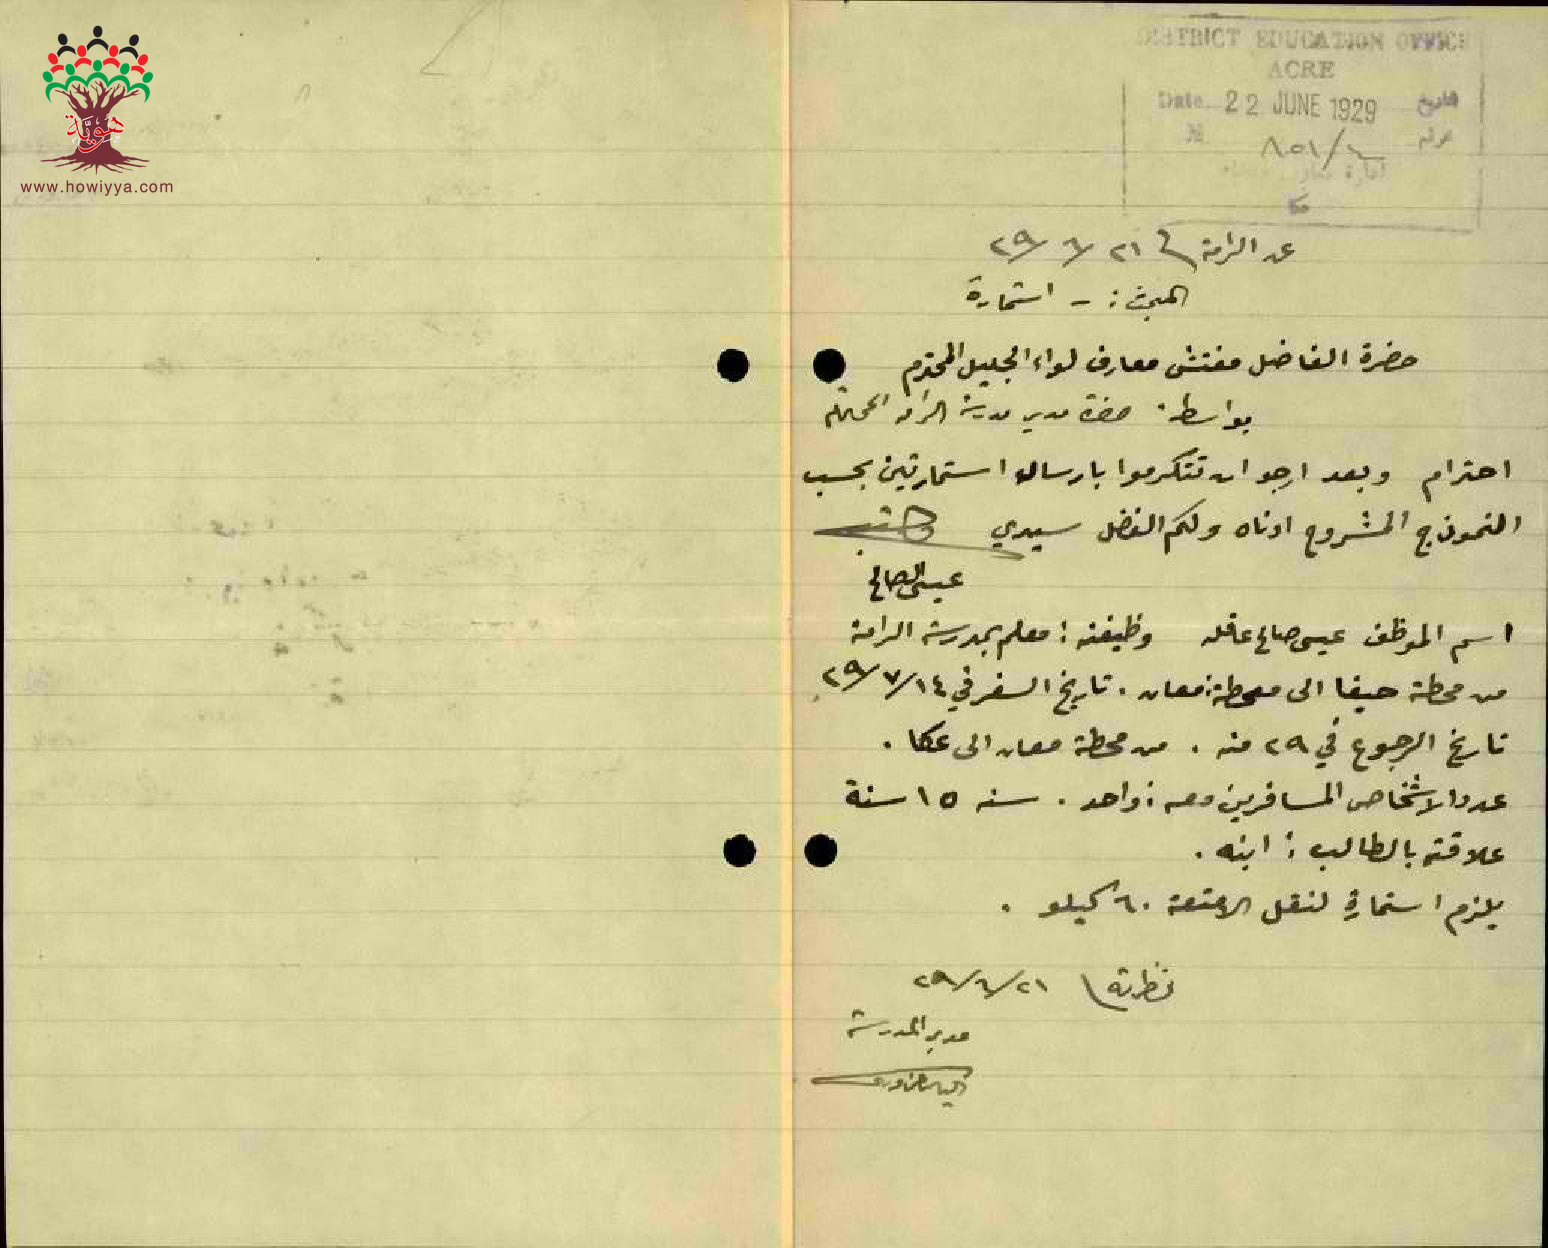 هوية
www.howiyya.com
DISTRICT EDUCATION OFFICE
ACRE
Date 22 JUNE 1929 تاريخ
№ ٨٥١/ نمرة
عكا
عن الرامة ٢١/٦/٢٩
المبحث :- استمارة
حضرة الفاضل مفتش معارف لواء الجليل المحترم
بواسطة حضرة مدير مدرسة الرامه المحترم
احترام وبعد ارجو ان تتكرموا بارسال استمارتين بحسب
النموذج المشروح ادناه ولكم الفضل سيدي
عيسى الصالح
اسم الموظف عيسى صالح عاقله وظيفته : معلم بمدرسة الرامة
من محطة حيفا الى محطة معان . تاريخ السفر في ١٤/٧/٢٩
تاريخ الرجوع في ٢٩ منه . من محطة معان الى عكا .
عدد الاشخاص المسافرين معه : واحد . سنه ١٥ سنة
علاقته بالطالب : ابنه .
يلزم استمارة لنقل الامتعة ٦٠ كيلو .
نظرته ٢١/٦/٢٩
مدير المدرسة